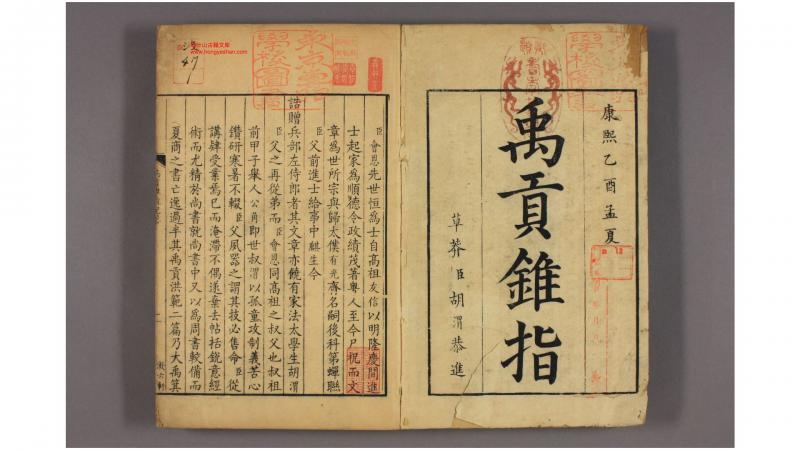 康熙乙酉孟夏
禹貢錐指
草莽臣胡渭恭進
臣會恩先世恒為士自高祖友信以明隆慶間進
士起家為順德令政績茂著粵人至今尸祝而文
章為世所宗與歸太僕有光齊名嗣後科第蟬聯
臣父前進士給事中麒生今
誥贈兵部左侍郎者其文章亦饒有家法太學生胡渭
臣父之再從弟而臣會恩同高祖之叔父也叔祖
前甲子舉人公角即世叔渭以孤童攻制義苦心
鑽研寒暑不輟臣父夙器之謂其技必售命臣從
講肄受業焉已而淹滯不偶遂棄去帖括銳意經
術而尤精於尚書就尚書中又以為周書較備而
夏商之書亡逸過半其禹貢洪範二篇乃大禹箕
漱六軒
47
www.hongyeshan.com